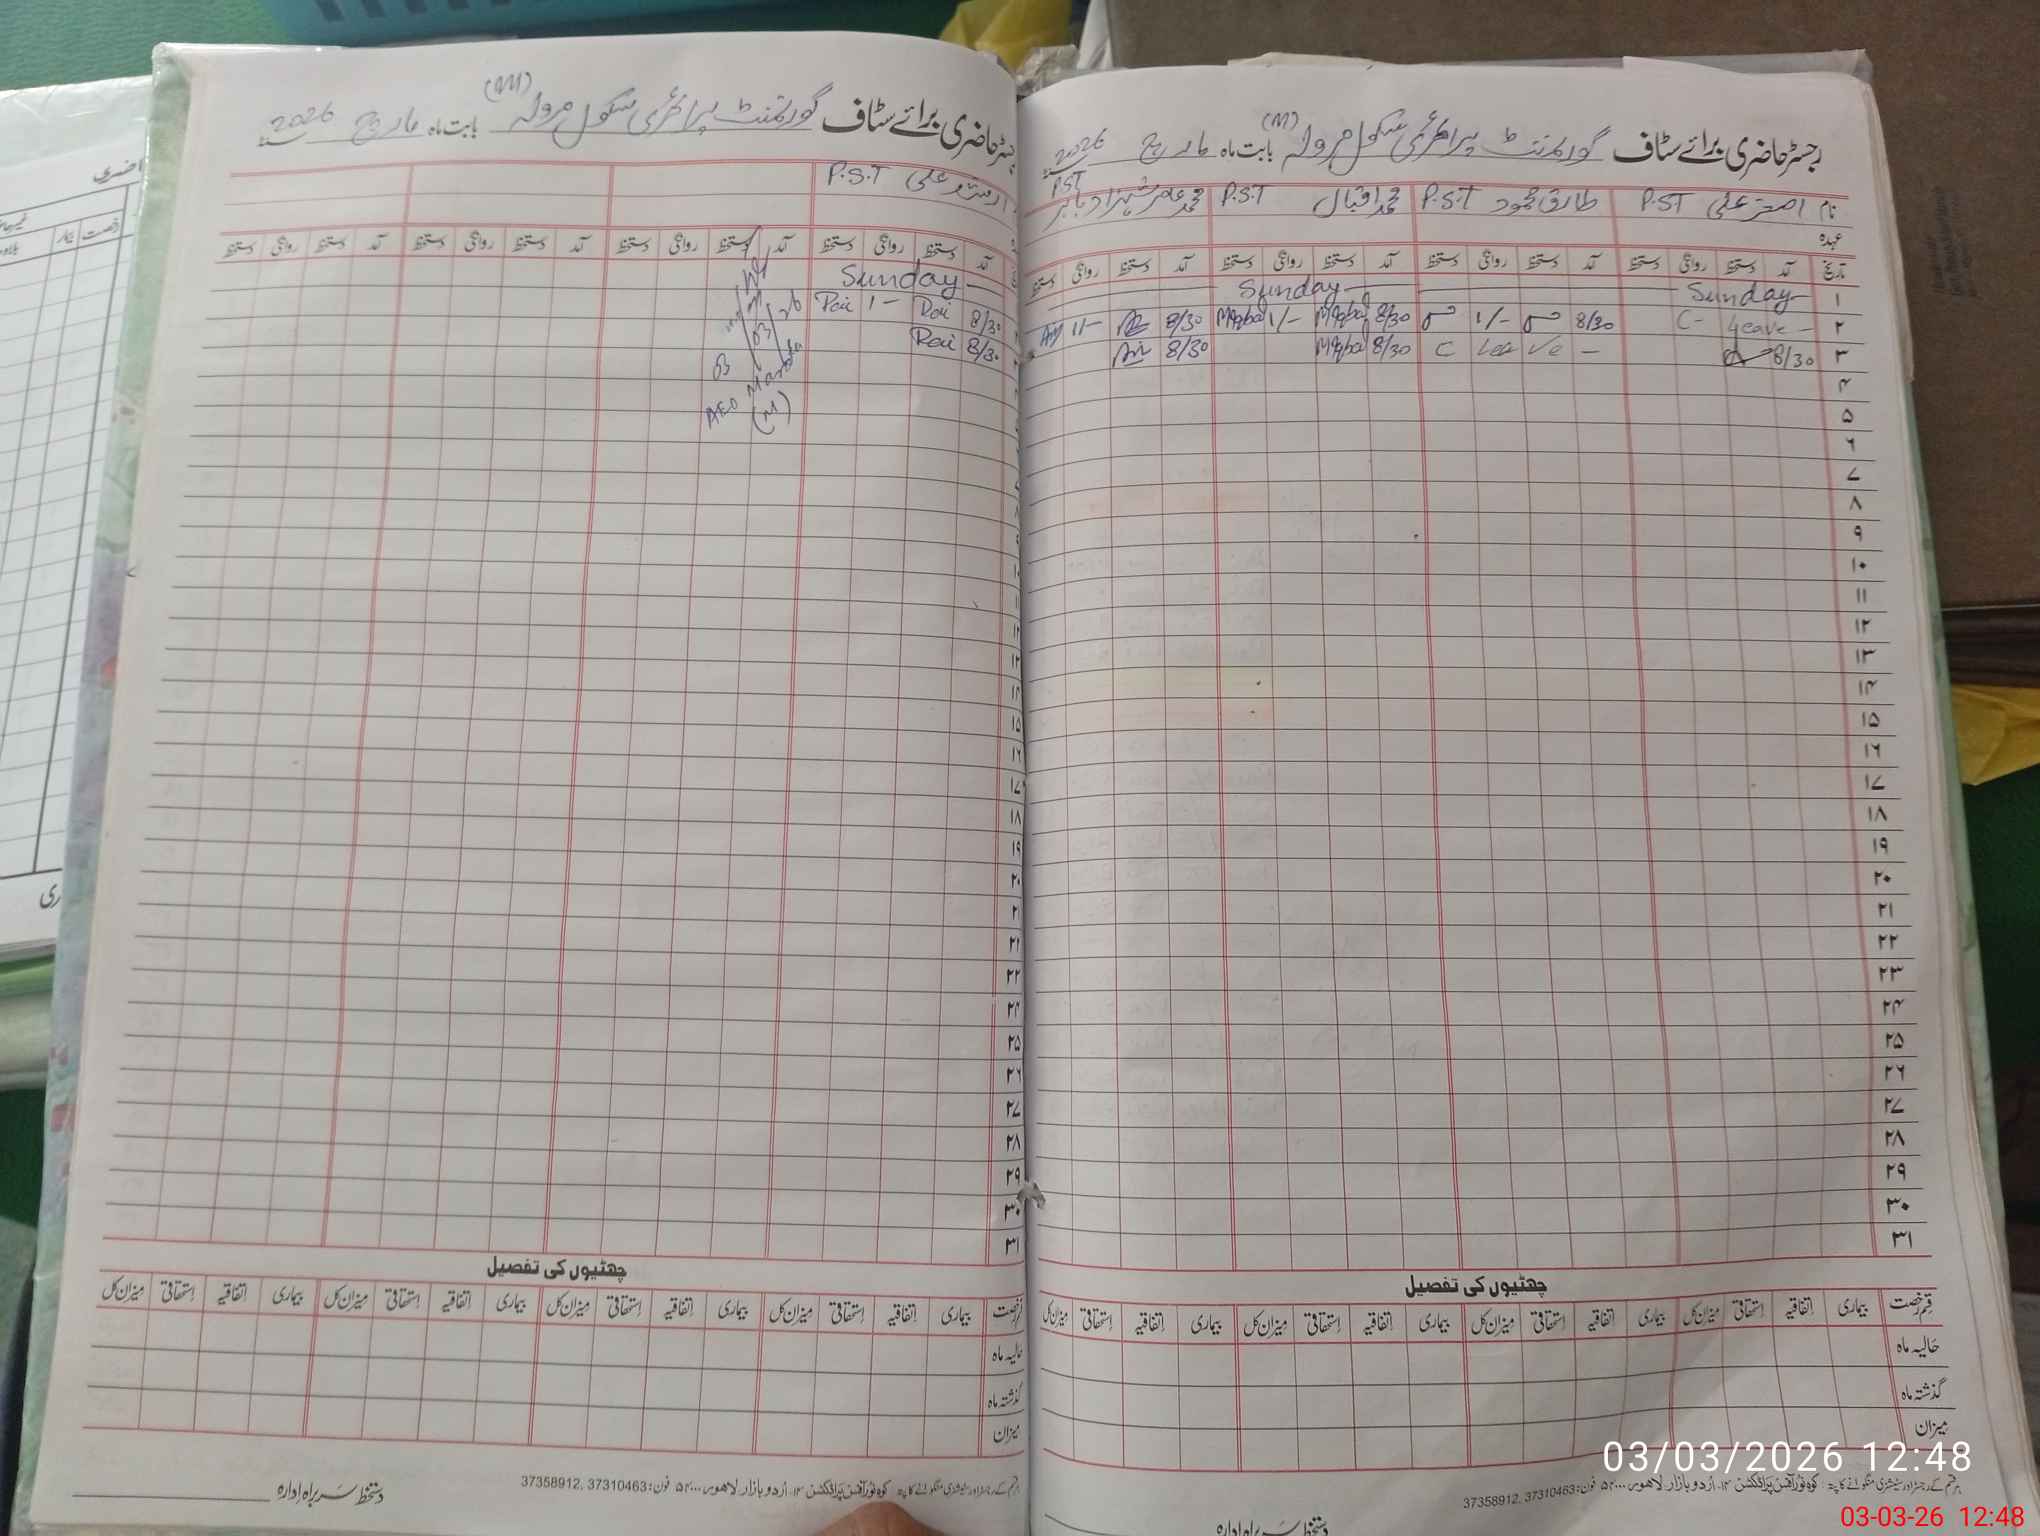 رجسٹر حاضری برائے سٹاف گورنمنٹ پرائمری سکول مرولہ (M) بابت ماہ مارچ 2026
نام اصغر علی P.ST طارق محمود P.S.T محمد اقبال P.S.T محمد عامر شہزاد بابر PST
عہدہ
تاریخ آمد دستخط روانگی دستخط آمد دستخط روانگی دستخط آمد دستخط روانگی دستخط آمد دستخط روانگی دستخط
۱ Sunday Sunday
۲ C- Leave - 8/30 1/- 8/30 MIqbal 1/- MIqbal 8/30 11-
۳ 8/30 C Leave - 8/30 MIqbal 8/30
۴
۵
۶
۷
۸
۹
۱۰
۱۱
۱۲
۱۳
۱۴
۱۵
۱۶
۱۷
۱۸
۱۹
۲۰
۲۱
۲۲
۲۳
۲۴
۲۵
۲۶
۲۷
۲۸
۲۹
۳۰
۳۱
چھٹیوں کی تفصیل
قسم رخصت بیماری اتفاقیہ استحقاقی میزان کل بیماری اتفاقیہ استحقاقی میزان کل بیماری اتفاقیہ استحقاقی میزان کل بیماری اتفاقیہ استحقاقی میزان کل
حالیہ ماہ
گذشتہ ماہ
میزان
ہر قسم کے رجسٹر اور سٹیشنری منگوانے کا پتہ: کوہ نور آفسٹ پراڈکٹس ۱۴۔ اُردو بازار لاہور فون: 37310463 ,37358912
دستخط سربراہ ادارہ
رجسٹر حاضری برائے سٹاف گورنمنٹ پرائمری سکول مرولہ (M) بابت ماہ مارچ 2026
علی P.S.T
آمد دستخط روانگی دستخط آمد دستخط روانگی دستخط آمد دستخط روانگی دستخط آمد دستخط روانگی دستخط
Sunday
8/30 Rai 1- Rai
8/30 Rai
03/03/26
AEO Marola
(M)
۱۲
۱۳
۱۴
۱۵
۱۶
۱۷
۱۸
۱۹
۲۰
۲۱
۲۲
۲۳
۲۴
۲۵
۲۶
۲۷
۲۸
۲۹
۳۰
۳۱
چھٹیوں کی تفصیل
رخصت بیماری اتفاقیہ استحقاقی میزان کل بیماری اتفاقیہ استحقاقی میزان کل بیماری اتفاقیہ استحقاقی میزان کل بیماری اتفاقیہ استحقاقی میزان کل
حالیہ ماہ
گذشتہ ماہ
میزان
ہر قسم کے رجسٹر اور سٹیشنری منگوانے کا پتہ: کوہ نور آفسٹ پراڈکٹس ۱۴۔ اُردو بازار لاہور فون: 37310463 ,37358912
دستخط سربراہ ادارہ
رخصت بیمار
03/03/2026 12:48
03-03-26 12:48